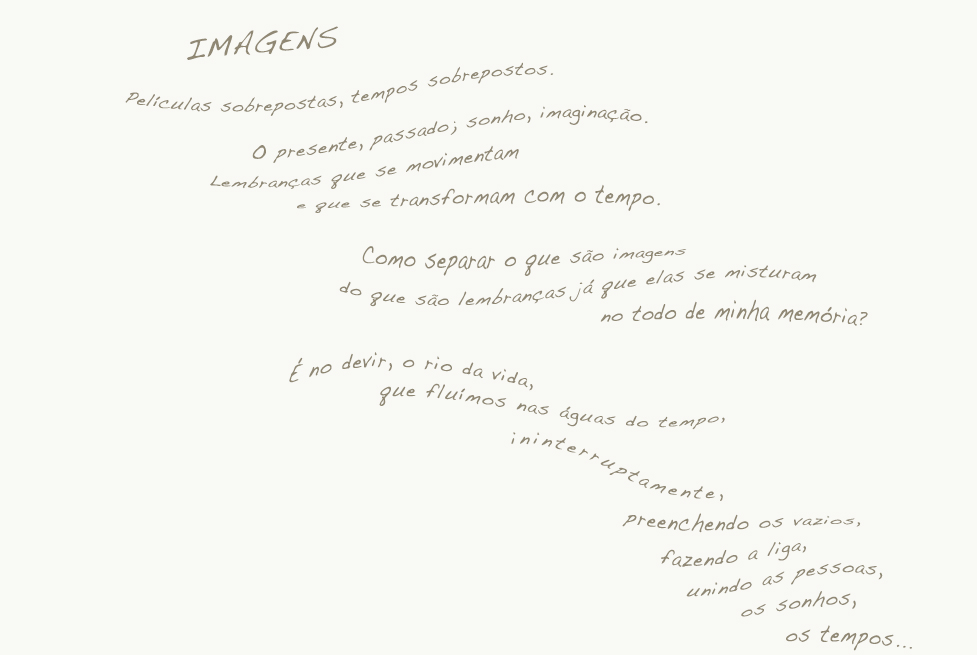 IMAGENS
Películas sobrepostas, tempos sobrepostos.
O presente, passado; sonho, imaginação.
Lembranças que se movimentam
e que se transformam com o tempo.
Como separar o que são imagens
do que são lembranças já que elas se misturam
no todo de minha memória?
É no devir, o rio da vida,
que fluímos nas águas do tempo,
ininterruptamente,
preenchendo os vazios,
fazendo a liga,
unindo as pessoas,
os sonhos,
os tempos...